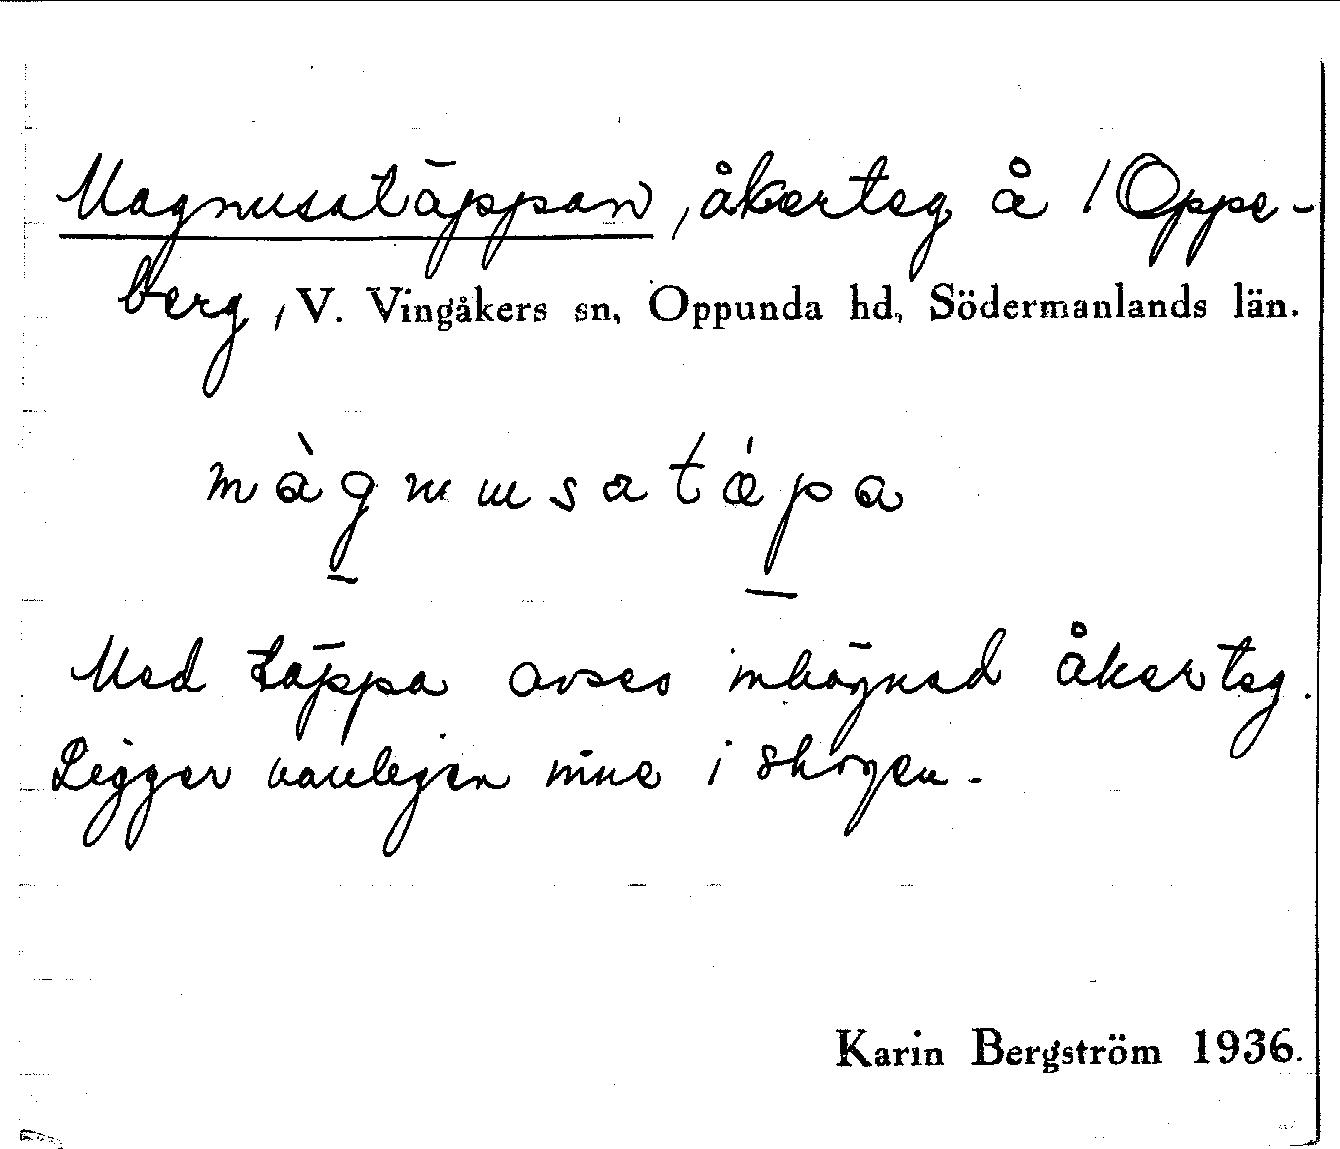 Magnusatäppan, åkerteg å 1 Oppe-
berg, V. Vingåkers sn, Oppunda hd, Södermanlands län.
màgnusatǽpa
Med täppa avses inhägnad åkerteg.
Ligger vanligen inne i skogen.
Karin Bergström 1936.